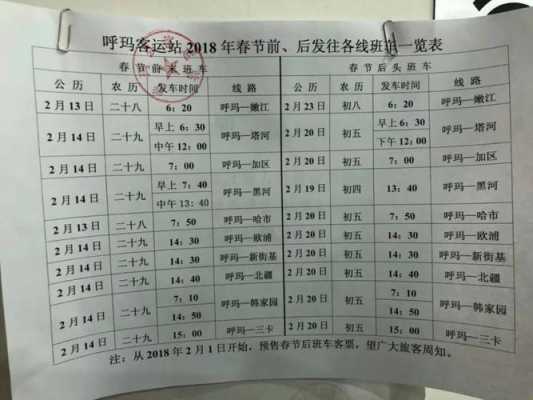 呼玛客运站 2018 年春节前、后发往各线班车一览表
春节前末班车 春节后头班车
公历 农历 发车时间 线路 公历 农历 发车时间 线路
2月13日 二十八 6：20 呼玛—嫩江 2月23日 初八 6：20 呼玛—嫩江
2月14日 二十九 早上 6：30 呼玛—塔河 2月20日 初五 早上 6：30 呼玛—塔河
中午 12：00 下午 12：00
2月14日 二十九 7：00 呼玛—加区 2月20日 初五 7：00 呼玛—加区
2月14日 二十九 早上 7：40 呼玛—黑河 2月19日 初四 13：40 呼玛—黑河
中午 13：40
2月13日 二十八 7：50 呼玛—哈市 2月20日 初五 7：50 呼玛—哈市
2月14日 二十九 14：30 呼玛—欧浦 2月20日 初五 14：30 呼玛—欧浦
2月14日 二十九 14：30 呼玛—新街基 2月20日 初五 14：30 呼玛—新街基
2月14日 二十九 14：40 呼玛—北疆 2月20日 初五 14：40 呼玛—北疆
2月14日 二十九 7：10 呼玛—韩家园 2月20日 初五 7：10 呼玛—韩家园
14：50 14：50
2月14日 二十九 15：00 呼玛—三卡 2月20日 初五 15：00 呼玛—三卡
注：从 2018 年 2 月 1 日开始，预售春节后班车客票，望广大旅客周知。